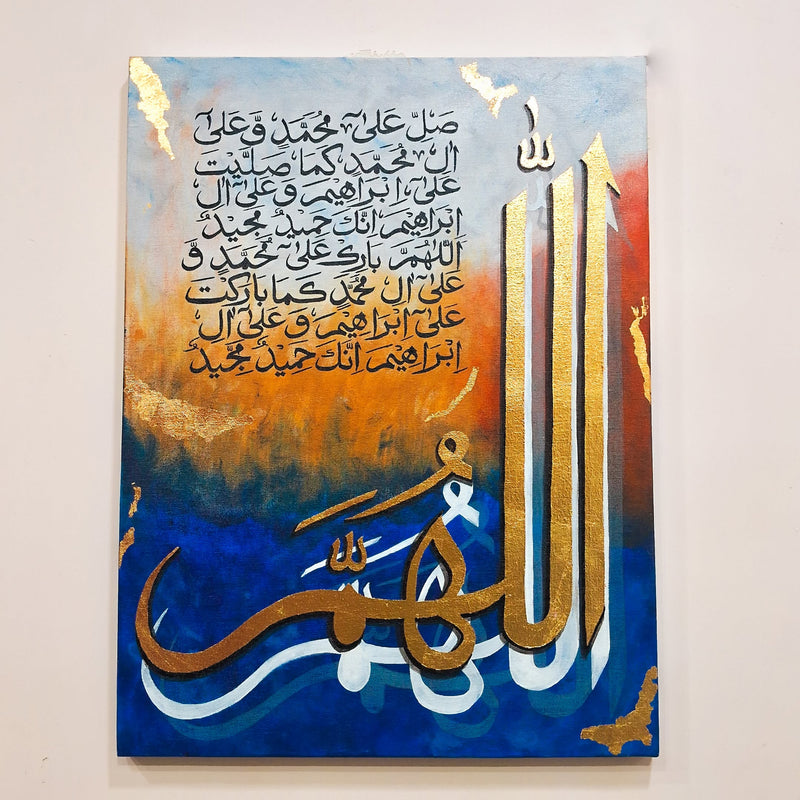 اللّٰهُمَّ
صَلِّ عَلٰىٓ مُحَمَّدٍ وَّعَلٰىٓ
اٰلِ مُحَمَّدٍ كَمَا صَلَّيْتَ
عَلٰىٓ اِبْرَاهِيْمَ وَعَلٰىٓ اٰلِ
اِبْرَاهِيْمَ اِنَّكَ حَمِيْدٌ مَجِيْدٌ
اَللّٰهُمَّ بَارِكْ عَلٰىٓ مُحَمَّدٍ وَّ
عَلٰىٓ اٰلِ مُحَمَّدٍ كَمَا بَارَكْتَ
عَلٰىٓ اِبْرَاهِيْمَ وَعَلٰىٓ اٰلِ
اِبْرَاهِيْمَ اِنَّكَ حَمِيْدٌ مَّجِيْدٌ